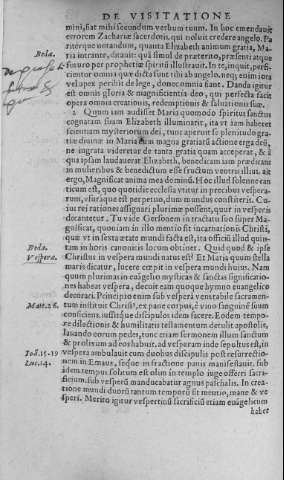 DE VISITATIONE
mini, fiat mihi secundum verbum tuum. In hoc emendauit
errorem Zachariæ sacerdotis, qui noluit credere angelo. Pa
riterque notandum, quanta Elizabeth animum gratia, Ma
ria intrante, ditauit: quã simul de præterito, præsenti atque
futuro per prophetiæ spiritũ illustrauit. In te, inquit, perfi-
cientur omnia quæ dicta sunt tibi ab angelo. neq; enim iota
vel apex peribit de lege, donec omnia fiant. Danda igitur
est omnis gloria & magnificentia deo, qui perfecta facit
opera omnia creationis, redemptionis & saluationis suæ.
2 Quum iam audisset Maria quomodo spiritus sanctus
cognatam suam Elizabeth illuminarit, ita vt iam haberet
scientiam mysteriorum dei, tunc aperuit se plenitudo gra-
tiæ diuinæ in Maria & in magna gratiarũ actione erga deũ,
ne ingrata videretur de tanta gratia quam acceperat, & à
qua ipsam laudauerat Elizabeth, benedicam iam prædicans
in mulieribus & benedictum esse fructum ventris illius. ait
ergo, Magnificat anima mea dominũ. Hoc illud solenne can
ticum est, quo quotidie ecclesia vtitur in precibus vespera-
rum, vsurque est perpetuo, dum mundus constiterit. Cu
ius rei rationes assignari plurimæ possent, quur in vesperis
decantetur. Tu vide Gersonem in tractatu suo super Ma-
gnificat, quoniam in illo mentio fit incarnationis Christi,
quæ vt in sexta ætate mundi facta est, ita officii illud quin-
tum in horis canonicis locum obtinet. Quid quod & ipse
Christus in vespera mundi natus est? Et Maria quum stella
maris dicatur, lucere cœpit in vespera mundi huius. Nam
quum plurimas in euãgelio mysticas & sanctas significatio-
nes habeat vespera, decuit eam quoque hymno euangelico
decorari. Principio enim sub vesperã venerabile sacramen-
tum instituit Christus, ex pane corpus, è vino sanguinẽ suum
conficiens. iussitque discipulos idem facere. Eodem tempo-
re dilectionis & humilitatis testamentum detulit apostolis,
lauando eorum pedes, tunc etiam sermonem illum sanctum
& prolixum ad eos habuit. ad vesperam inde sepultus est, in
vespera ambulauit cum duobus discipulis post resurrectio-
nem in Emaus, seque in fractione panis manifestauit. sub
idem tempus solitum est olim in templo iuge offerri sacri-
ficium. sub vesperã manducabatur agnus paschalis. In crea-
tione mundi duorũ tantum temporũ fit mentio, mane & ve
speri. Merito igitur vespertinũ sacrificiũ etiam euãgelicum
habet
Beda.
Beda.
Vespera.
Matt.26.
Ioã.13.19
Luc.24.